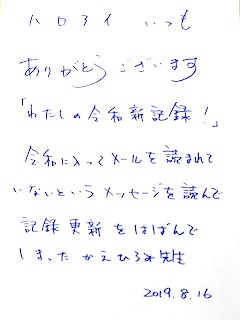 ハロアイ いつも
ありがとうございます
「わたしの令和新記録!」
令和に入ってメールを読まれて
いないというメッセージを読んで
記録更新をはばんで
しまったかえひろみ先生
2019.8.16